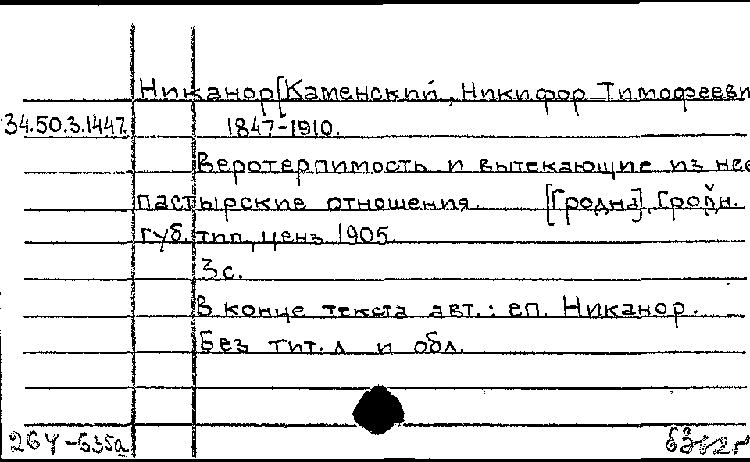 Никанор [Каменский, Никифор Тимофееви
34.50.3.1447. 1847-1910.
Веротерпимость и вытекающие из нее
пастырские отношения. [Гродна], Гродн.
губ. тип., ценз 1905.
3 с.
В конце текста авт.: еп. Никанор.
Без тит. л и обл.